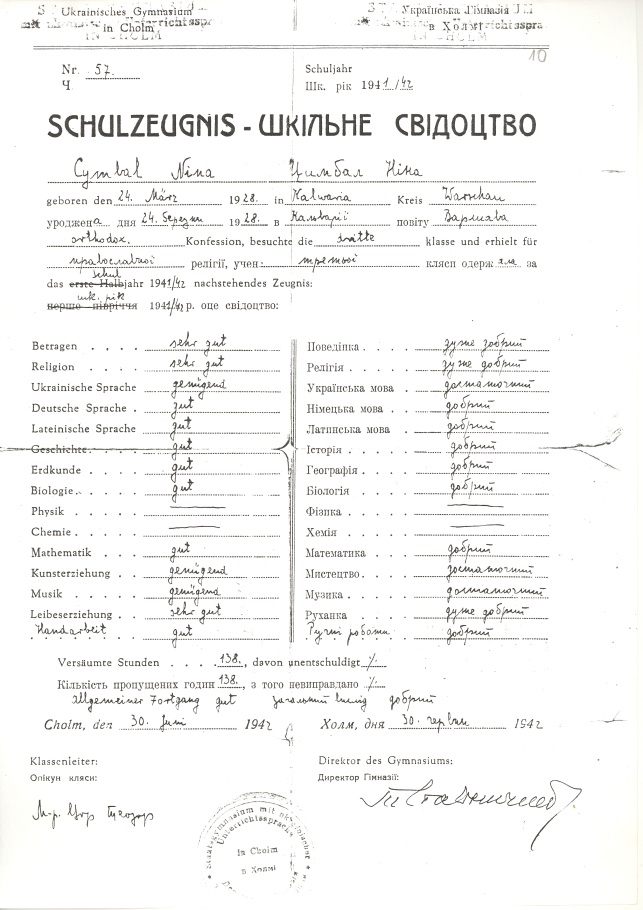 Ukrainisches Gymnasium Українська Гімназія
in Cholm в Холмі
10
Nr. 57. Schuljahr
Ч. Шк. рік 1941/42
SCHULZEUGNIS - ШКІЛЬНЕ СВІДОЦТВО
Cymbal Nina Цимбал Ніна
geboren den 24. März 1928. in Kalwaria Kreis Warschau
уроджена дня 24. березня 1928. в Кальварії повіту Варшава
orthodox. Konfession, besuchte die dritte klasse und erhielt für
православної релігії, учен. третьої кляси одержала за
schul
das erste Halbjahr 1941/42 nachstehendes Zeugnis:
шк. рік
перше півріччя 1941/42 р. оце свідоцтво:
Betragen . . . . sehr gut Поведінка . . . . дуже добрий
Religion . . . . sehr gut Релігія . . . . дуже добрий
Ukrainische Sprache genügend Українська мова . достаточний
Deutsche Sprache . gut Німецька мова . . добрий
Lateinische Sprache gut Латинська мова . добрий
Geschichte . . . . gut Історія . . . . добрий
Erdkunde . . . . gut Географія . . . . добрий
Biologie . . . . gut Біологія . . . . добрий
Physik . . . . Фізика . . . .
Chemie . . . . Хемія . . . .
Mathematik . . gut Математика . . . добрий
Kunsterziehung . . genügend Мистецтво . . . . достаточний
Musik . . . . genügend Музика . . . . достаточний
Leibeserziehung . . sehr gut Руханка . . . . дуже добрий
Handarbeit gut Ручні роботи добрий
Versäumte Stunden . . . . 138., davon unentschuldigt ./.
Кількість пропущених годин 138., з того невиправдано ./.
Allgemeiner Fortgang gut загальний вислід добрий
Cholm, den 30. Juni 1942 Холм, дня 30. червня 1942
Klassenleiter: Direktor des Gymnasiums:
Опікун кляси: Директор Гімназії:
in Cholm
в Холмі